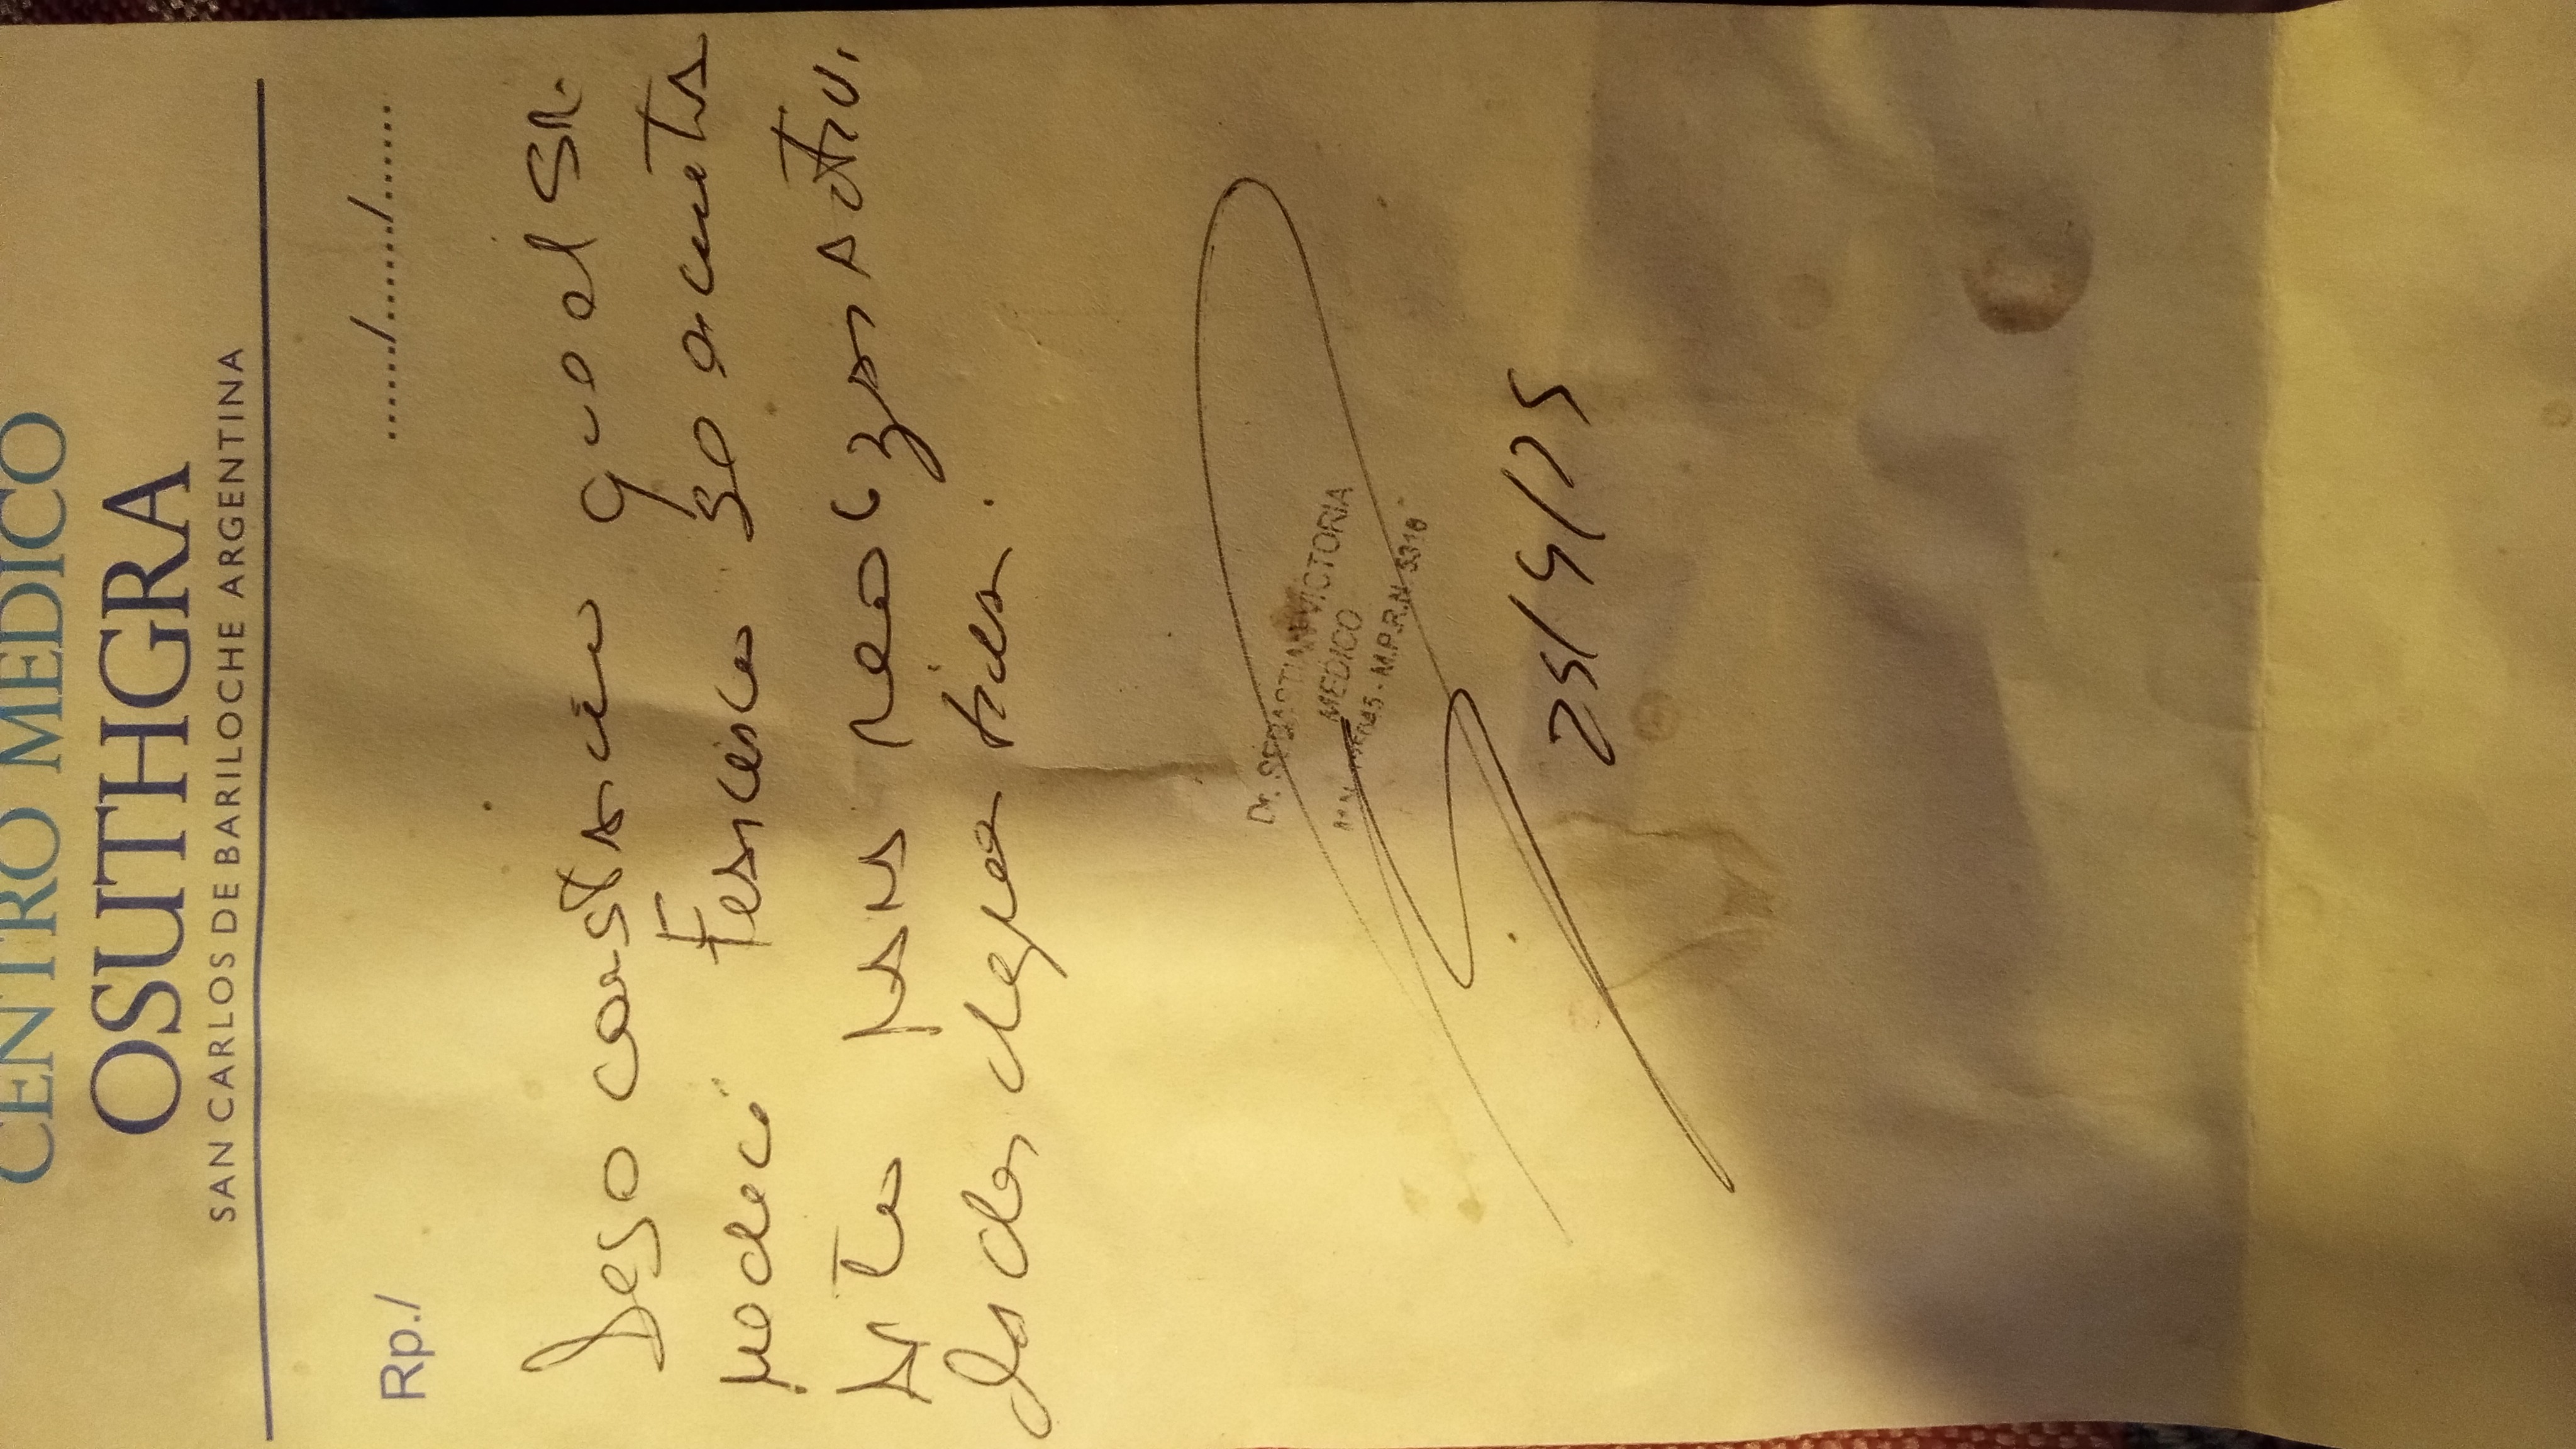 CENTRO MEDICO
OSUTHGRA
SAN CARLOS DE BARILOCHE ARGENTINA
Rp./ ....../....../......
Dejo constancia que el Sr.
Francisco se encuentra
apto para realizar activi
dades deportivas.
Dr. SEBASTIAN VICTORIA
MEDICO
M.P.R.N. 5316
25/5/25